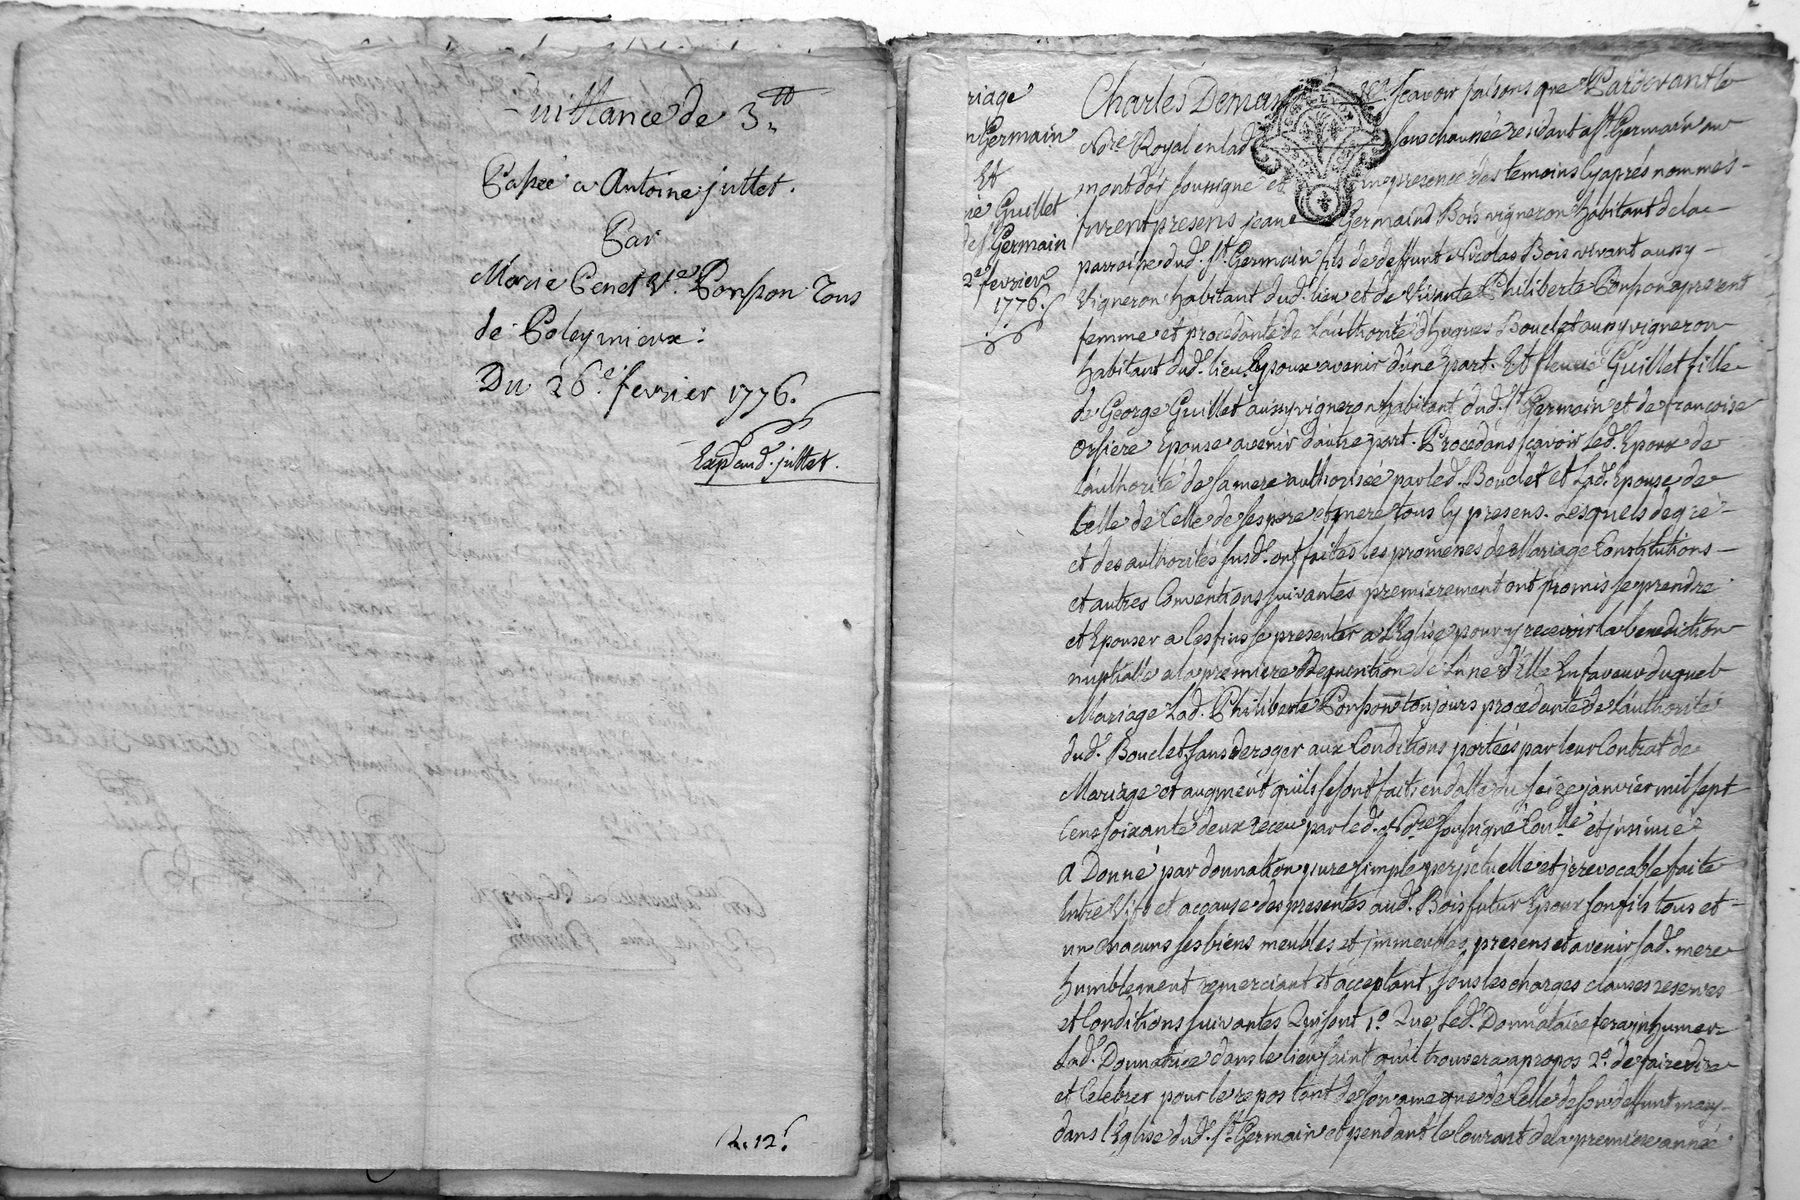 Quittance de 3.tt
Passée a Antoine juttet.
Par
Marie Penet Ve. Ponson Tous
de Poleymieux:
Du 26.e fevrier 1776.
Exp. aud. juttet.
R. 12s
riage
n Germain
Et
Guillet
de St Germain
2e fevrier
1776.
Charles Demar scavoir faisons que Pardevant le
Nore Royal en lad Senechaussée residant a St Germain au
mont d'or soussigné et en presence des temoins Cy après nommés
furent presens jean Germain Bois vigneron habitant de la
parroisse dud. St Germain fils de deffunt Nicolas Bois vivant aussy
Vigneron habitant dud. lieu et de Vivante Philiberte Ponson apresent
femme et procedante de L'authorité d'hugues Bouclet aussy vigneron
habitant dud. lieu Epoux avenir d'une part. Et fleurie Guillet fille
de George Guillet aussy vigneron habitant dud. St Germain et de francoise
Orsiere Epouse avenir d'autre part. Procedans scavoir led. Epoux de
L'authorité de sa mere authorisée par led. Bouclet et Lad. Epouse de
Celle de ses pere et mere tous Cy presens. Lesquels de gré
et des authorités susd. ont faites les promesses de Mariage Constitutions
et autres Conventions suivantes premierement ont promis se prendre
et Epouser a Ces fins se presenter a L'Eglise pour y recevoir la benediction
nuptialle a la premiere Requisition de L'un d'Elle En faveur duquel
Mariage Lad. Philiberte Ponson toujours procedante de L'authorité
dud. Bouclet sans deroger aux Conditions portées par leur Contrat de
Mariage et augment qu'ils se sont fait, en datte du seize janvier mil sept
Cens soixante deux receu par led. Nore soussigné Conllé et jnsinué
a Donné par donnation pure simple perpetuelle et jrrevocable faite
Entre Vifs et a cause des presentes aud. Bois futur Epoux son fils tous et
un chacuns ses biens meubles et jmmeubles, presens et avenir sad. mere
humblement remerciant et acceptant, sous les charges clauses reserves
et Conditions suivantes Qui sont 1.o Que Led. Donnataire fera inhumer
Lad. Donnatrice dans le lieu saint qu'il trouvera apropos 2.o de faire dire
et Celebrer pour le repos tant de son ame que de Celle de son deffunt mary
dans l'Eglise dud. St Germain et pendant le Courant de la premiere année